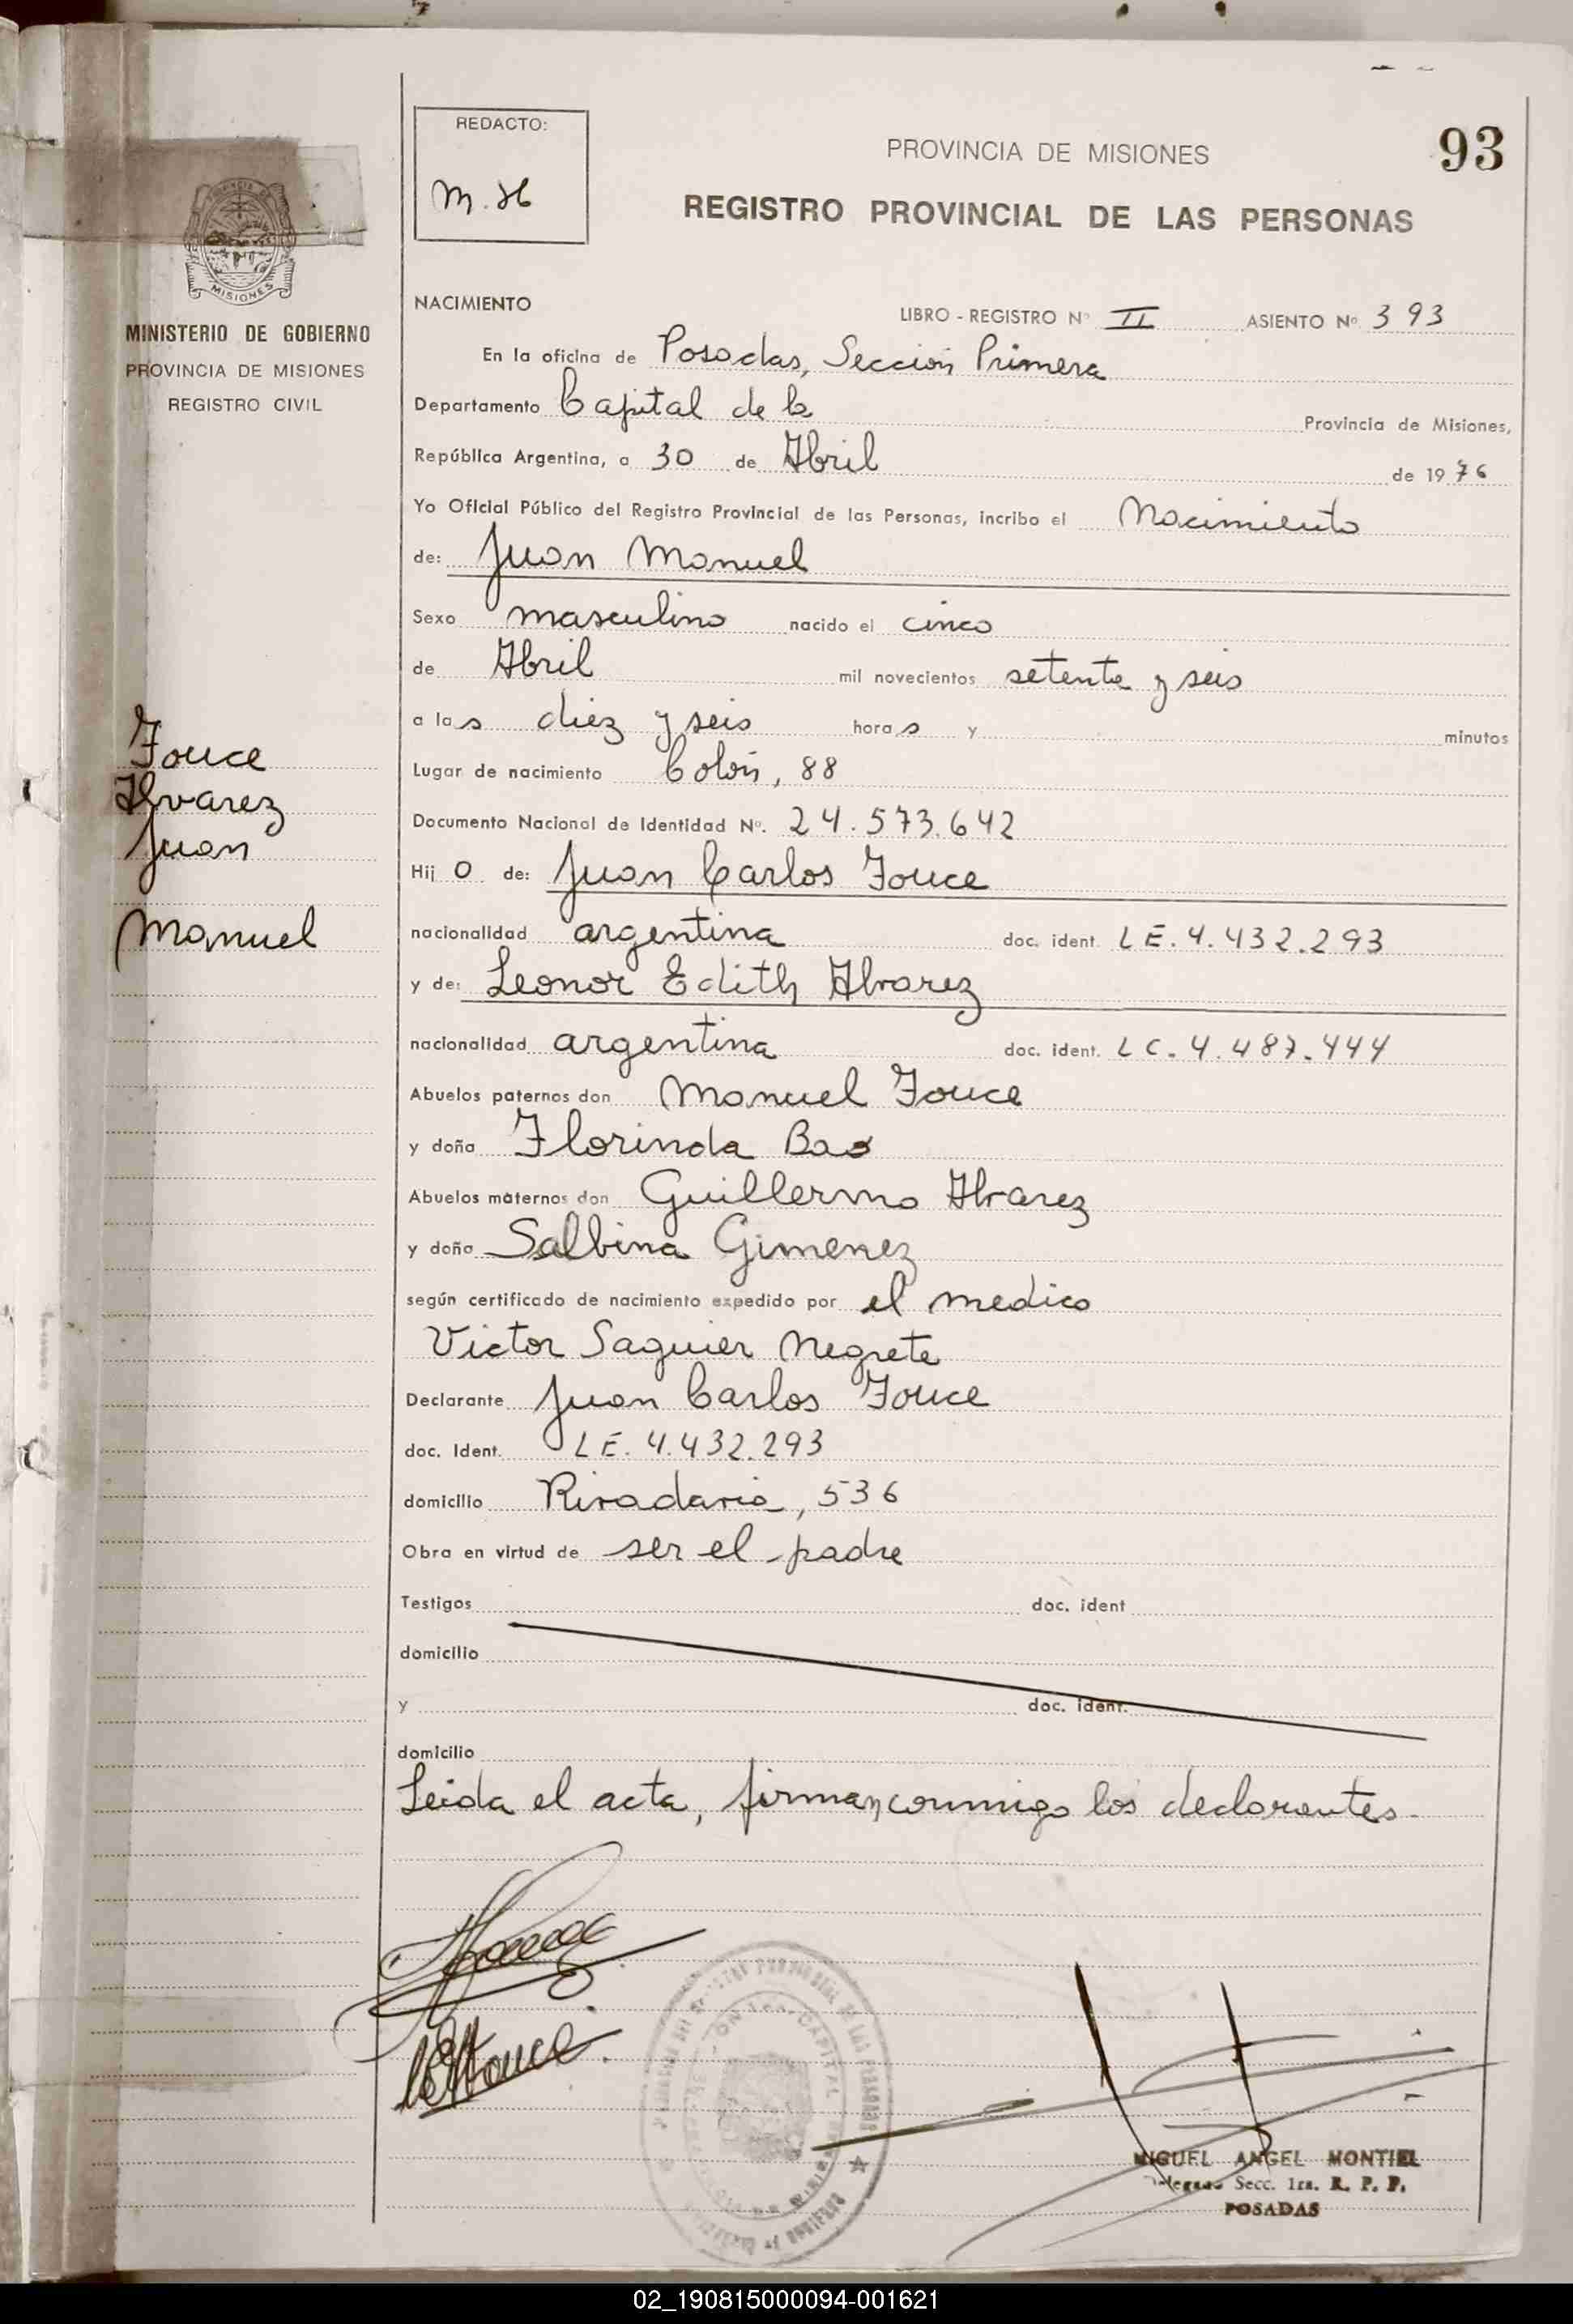 REDACTO:
M. H
PROVINCIA DE MISIONES
93
REGISTRO PROVINCIAL DE LAS PERSONAS
MISIONES
MINISTERIO DE GOBIERNO
PROVINCIA DE MISIONES
REGISTRO CIVIL
NACIMIENTO
LIBRO - REGISTRO Nº II ASIENTO Nº 393
En la oficina de Posadas, Sección Primera
Departamento Capital de la Provincia de Misiones,
República Argentina, a 30 de Abril de 1976
Yo Oficial Público del Registro Provincial de las Personas, incribo el Nacimiento
de: Juan Manuel
Sexo masculino nacido el cinco
de Abril mil novecientos setenta y seis
a las diez y seis horas y minutos
Fouce
Alvarez
Juan
Manuel
Lugar de nacimiento Colón, 88
Documento Nacional de Identidad Nº. 24.573.642
Hijo de: Juan Carlos Fouce
nacionalidad argentina doc. ident. LE. 4.432.293
y de: Leonor Edith Alvarez
nacionalidad argentina doc. ident. LC. 4.487.444
Abuelos paternos don Manuel Fouce
y doña Florinda Bao
Abuelos maternos don Guillermo Alvarez
y doña Salbina Gimenez
según certificado de nacimiento expedido por el medico
Victor Saguier Negrete
Declarante Juan Carlos Fouce
doc. Ident. LE. 4.432.293
domicilio Rivadavia, 536
Obra en virtud de ser el padre
Testigos doc. ident
domicilio
y doc. ident.
domicilio
Leida el acta, firman conmigo los declarantes.
MIGUEL ANGEL MONTIEL
Delegado Secc. 1ra. R. P. P.
POSADAS
02_190815000094-001621